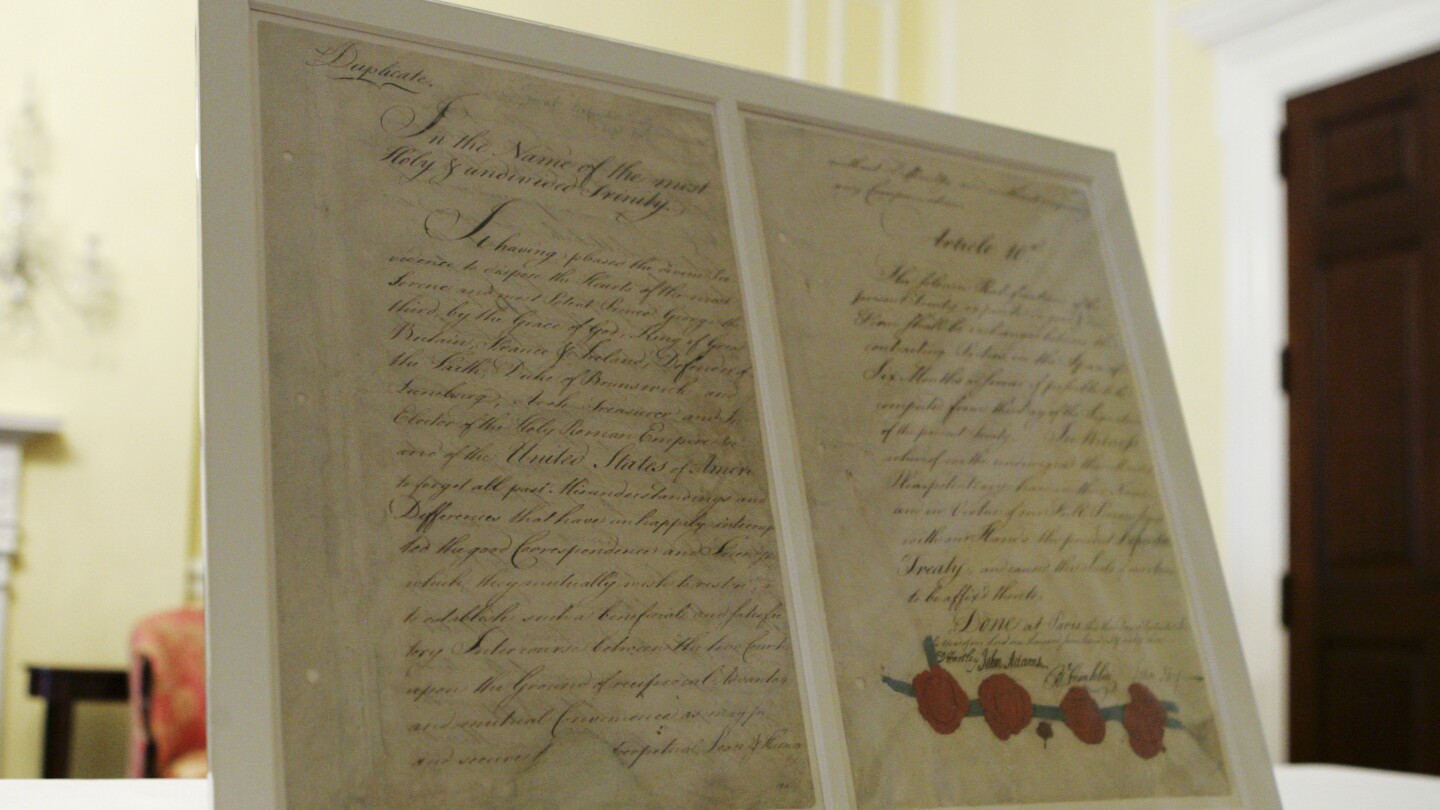 Duplicate.
In the Name of the most
Holy & undivided Trinity.
It having pleased the divine Pro
vidence to dispose the Hearts of the most
Serene and most Potent Prince George the
third, by the Grace of God, King of Great
Britain, France & Ireland, Defender of
the Faith, Duke of Brunswick and
Lunebourg, Arch Treasurer and
Elector of the Holy Roman Empire
and of the United States of Ameri
to forget all past Misunderstandings and
Differences that have unhappily interrup
ted the good Correspondence and Friendship
which they mutually wish to restore;
to establish such a beneficial and satisfac
tory Intercourse between the two Count
upon the Ground of reciprocal Advantag
and mutual Convenience as may
and secure Perpetual Peace & Harm
any Compensation.
Article 10th
The solemn Ratifications of the
present Treaty expedited in good
Form shall be exchanged between the
contracting Parties in the Space of
Six Months or sooner if possible to be
computed from the Day of the Signature
of the present Treaty. In Witness
whereof we the undersigned their
Plenipotentiary have in their Name
and in Virtue of our Full Powers
with our Hands the present Definitive
Treaty, and caused the Seals
to be affix'd thereto.
Done at Paris
D Hartley John Adams. B Franklin John Jay